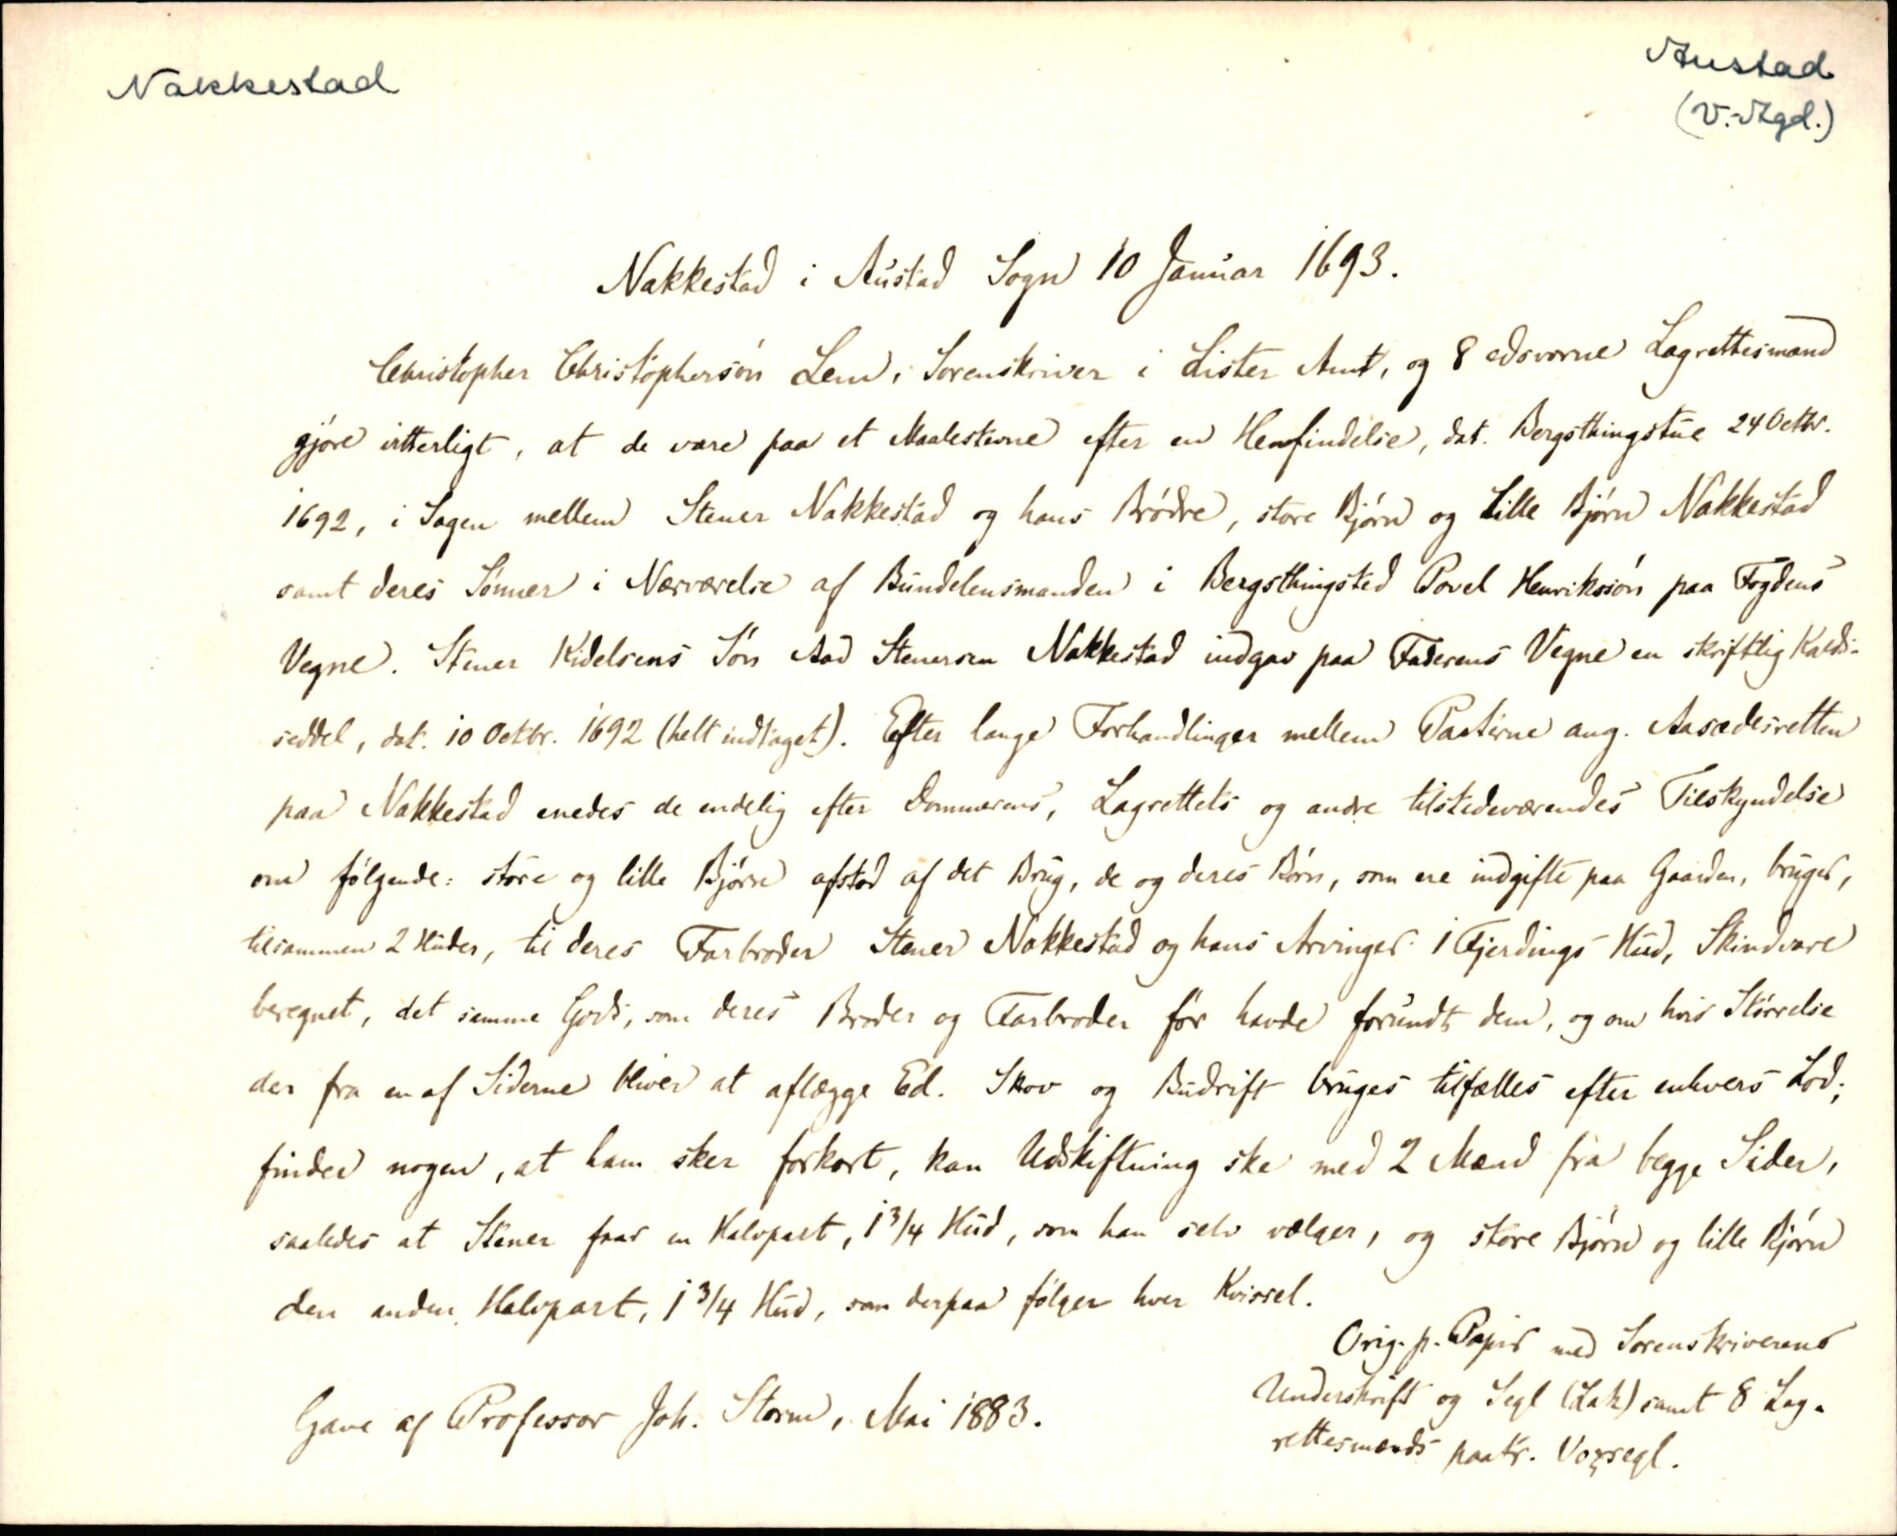 Nakkestad
Austad
(V.-Agd.)
Nakkestad i Austad Sogn 10 Januar 1693.
Christopher Christophersön Lem, Sorenskriver i Lister Amt, og 8 edsvorne Lagrettesmænd
gjöre vitterligt, at de vare paa et Maalestevne efter en Henfindelse, dat. Bergsthingstue 24 Octbr.
1692, i Sagen mellem Stener Nakkestad og hans Brödre, store Björn og Lille Björn Nakkestad
samt deres Sönner i Nærværelse af Bundelensmanden i Bergsthingsted Povel Henrikssön paa Fogdens
Vegne. Stener Kidelsens Sön Aad Stenersen Nakkestad indgav paa Faderens Vegne en skriftlig Kalds-
seddel, dat. 10 Octbr. 1692 (helt indtaget). Efter lange Forhandlinger mellem Parterne ang. Aasædesretten
paa Nakkestad enedes de endelig efter Dommerens, Lagrettets og andre tilstedeværendes Tilskyndelse
om fölgende: store og lille Björn afstod af det Brug, de og deres Börn, som ere indgifte paa Gaarden, bruger,
tilsammen 2 Huder, til deres Farbroder Stener Nakkestad og hans Arvinger 1 Fjerdings Hud, Skindvare
beregnet, det samme Gods, som deres Broder og Farbroder för havde forundt dem, og om hvis Störrelse
der fra en af Siderne bliver at aflægge Ed. Skov og Budrift bruges tilfælles efter enhvers Lod;
finder nogen, at ham sker forkort, kan Udskiftning ske med 2 Mænd fra begge Sider,
saaledes at Stener faar en Halvpart, 1 3/4 Hud, som han selv vælger, og store Björn og lille Björn
den anden Halvpart, 1 3/4 Hud, som derpaa fölger hver Kvissel.
Orig. p. Papir med Sorenskriverens
Underskrift og Segl (Lak) samt 8 Lag-
rettesmænds paatr. Voxsegl.
Gave af Professor Joh. Storm, Mai 1883.